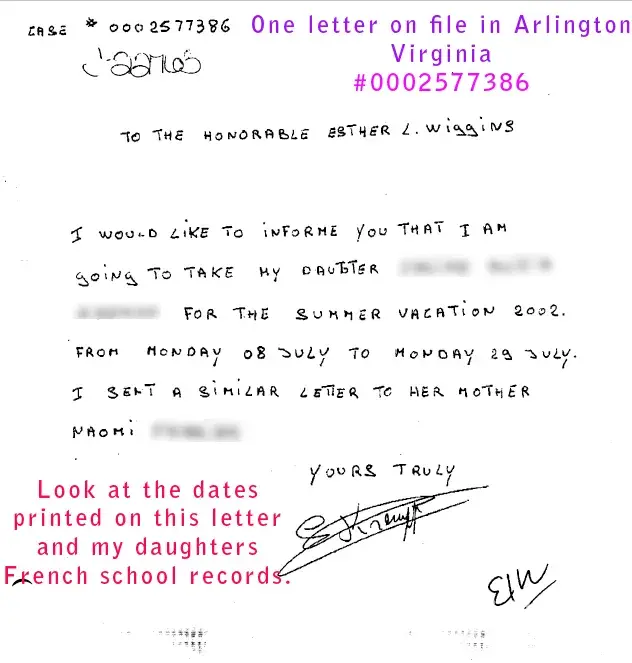 CASE # 0002577386
One letter on file in Arlington
Virginia
#0002577386
TO THE HONORABLE ESTHER L. WIGGINS
I WOULD LIKE TO INFORME YOU THAT I AM
GOING TO TAKE MY DAUTTER
FOR THE SUMMER VACATION 2002.
FROM MONDAY 08 JULY TO MONDAY 29 JULY.
I SENT A SIMILAR LETTER TO HER MOTHER
NAOMI
YOURS TRULY
Look at the dates
printed on this letter
and my daughters
French school records.
ELW